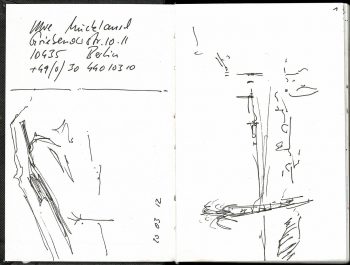 Uwe Mückland
Griebenowstr. 10-11
10435 Berlin
+49/0/30 44010310
20 03 12
1